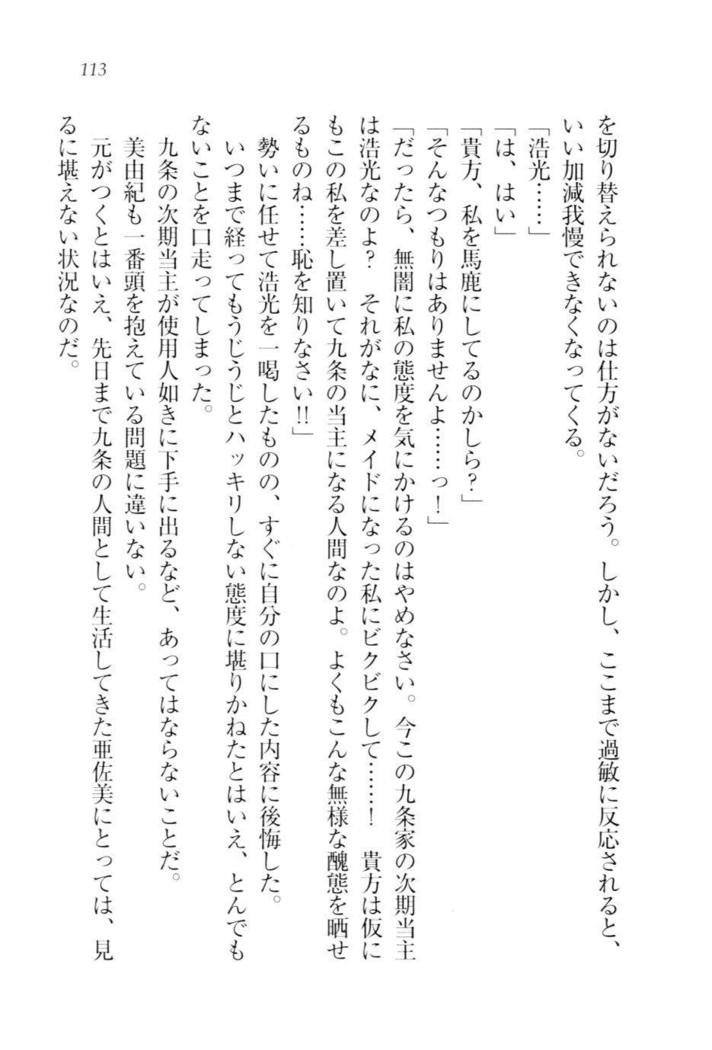 113
を切り替えられないのは仕方がないだろう。しかし、ここまで過敏に反応されると、
いい加減我慢できなくなってくる。
「浩光……」
「は、はい」
「貴方、私を馬鹿にしてるのかしら?」
「そんなつもりはありませんよ……っ!」
「だったら、無闇に私の態度を気にかけるのはやめなさい。今この九条家の次期当主
は浩光なのよ? それがなに、メイドになった私にビクビクして……! 貴方は仮に
もこの私を差し置いて九条の当主になる人間なのよ。よくもこんな無様な醜態を晒せ
るものね……恥を知りなさい!!」
勢いに任せて浩光を一喝したものの、すぐに自分の口にした内容に後悔した。
いつまで経ってもうじうじとハッキリしない態度に堪りかねたとはいえ、とんでも
ないことを口走ってしまった。
九条の次期当主が使用人如きに下手に出るなど、あってはならないことだ。
美由紀も一番頭を抱えている問題に違いない。
元がつくとはいえ、先日まで九条の人間として生活してきた亜佐美にとっては、見
るに堪えない状況なのだ。